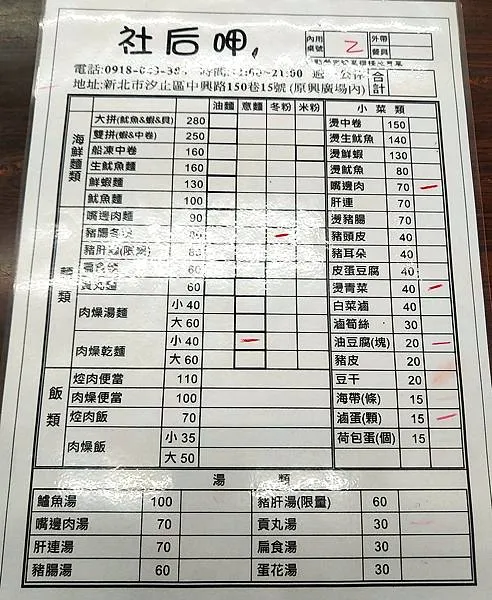 社后呷
內用桌號 2 外帶餐具
合計
地址:新北市汐止區中興路150巷15號(原興廣場內)
油麵 意麵 冬粉 米粉 小菜類
海鮮麵類
大拼(魷魚&蝦&貝) 280
雙拼(蝦&中卷) 250
船凍中卷 160
生魷魚麵 160
鮮蝦麵 130
魷魚麵 100
麵類
嘴邊肉麵 90
豬腸冬粉
豬肝
60
貢丸麵 60
肉燥湯麵 小 40
大 60
肉燥乾麵 小 40
大 60
飯類
焢肉便當 110
肉燥便當 100
焢肉飯 70
肉燥飯 小 35
大 50
燙中卷 150
燙生魷魚 140
燙鮮蝦 130
燙魷魚 80
嘴邊肉 70
肝連 70
燙豬腸 70
豬頭皮 40
豬耳朵 40
皮蛋豆腐 40
燙青菜 40
白菜滷 40
滷筍絲 30
油豆腐(塊) 20
豬皮 20
豆干 20
海帶(條) 15
滷蛋(顆) 15
荷包蛋(個) 15
湯類
鱸魚湯 100 豬肝湯(限量) 60
嘴邊肉湯 70 貢丸湯 30
肝連湯 70 扁食湯 30
豬腸湯 60 蛋花湯 30